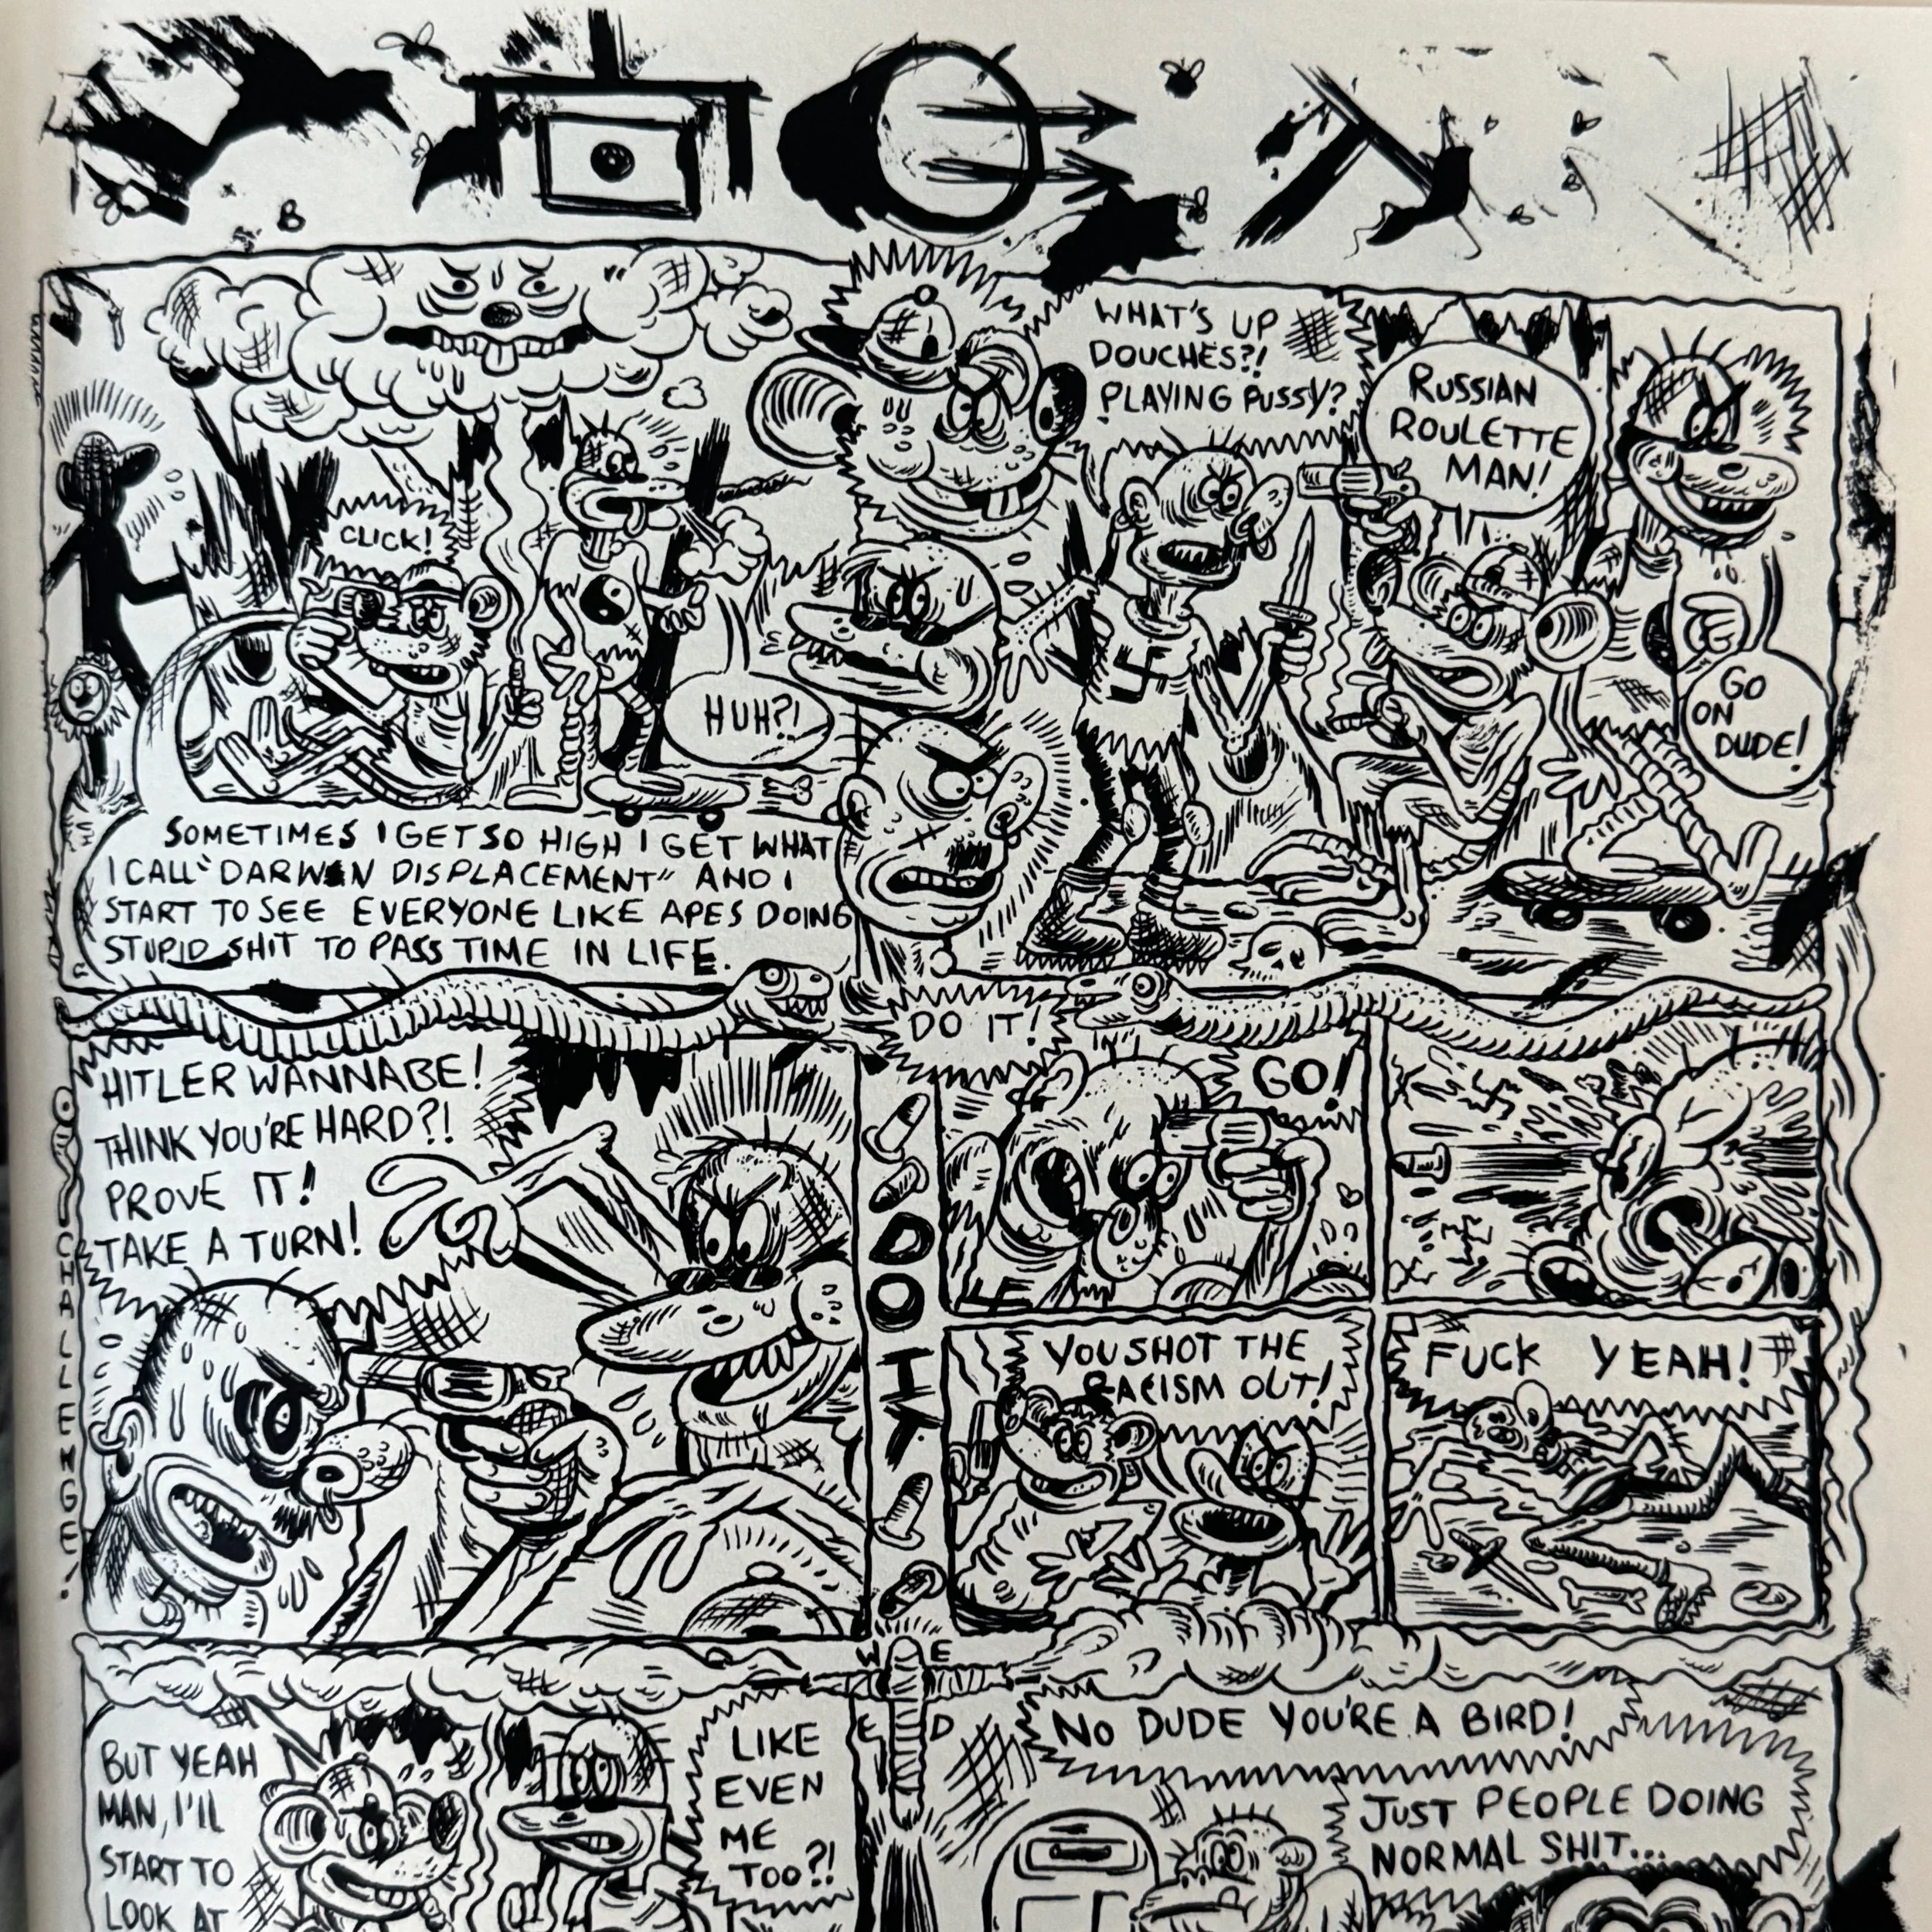 CLICK!
HUH?!
SOMETIMES I GET SO HIGH I GET WHAT
I CALL "DARWIN DISPLACEMENT" AND I
START TO SEE EVERYONE LIKE APES DOING
STUPID SHIT TO PASS TIME IN LIFE.
WHAT'S UP
DOUCHES?!
PLAYING PUSSY?
RUSSIAN
ROULETTE
MAN!
GO
ON
DUDE!
HITLER WANNABE!
THINK YOU'RE HARD?!
PROVE IT!
TAKE A TURN!
CHALLENGE!
DO IT!
DO IT
GO!
YOU SHOT THE
RACISM OUT!
FUCK YEAH!
WEED
BUT YEAH
MAN, I'll
START TO
LOOK AT
LIKE
EVEN
ME
TOO?!
NO DUDE YOU'RE A BIRD!
JUST PEOPLE DOING
NORMAL SHIT...